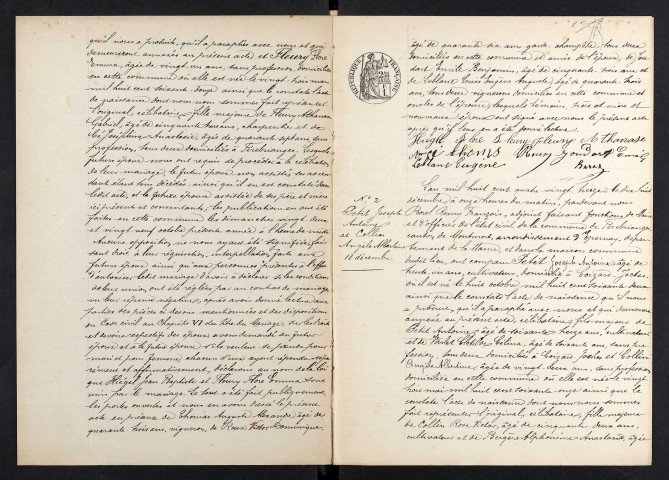 qu'il nous a produits, qu'il a paraphés avec nous et qui
demeureront annexés au présent acte et Fleury Flore
Emma, âgée de vingt un ans, sans profession, domiciliée
en cette commune où elle est née le vingt trois mai
mil huit cent soixante douze ainsi que le constate l'acte
de naissance dont nous nous sommes fait représenter
l'original, célibataire, fille majeure de Fleury Athanase
Gabriel, âgé de cinquante un ans, charpentier et de
Joséphine Anastasie, âgée de quarante sept ans, sans
profession, tous deux domiciliés à Férebrianges. Lesquels
futurs époux nous ont requis de procéder à la célébration
de leur mariage, le futur époux
dont leurs décédés ainsi qu'il en est constaté dans
ledit acte, et la future épouse assistée de ses père et mère
ici présents et consentants; les publications en ont été
faites en cette commune les dimanches vingt deux
et vingt neuf octobre présente année à l'heure de midi
Aucune opposition ne nous ayant été signifiée, fai-
sant droit à leur réquisition, interpellation faite aux
futurs époux ainsi qu'aux personnes présentes à l'effet
d'autoriser ledit mariage d'avoir à déclarer si les conditions
de leur union ont été réglées par un contrat de mariage
vu leur réponse négative, après avoir donné lecture aux
parties des pièces ci-dessus mentionnées et des dispositions
du Code civil au Chapitre VI du titre du Mariage, sur les droits
et devoirs respectifs des époux, avons demandé au futur
époux et à la future épouse s'ils veulent se prendre pour
mari et pour femme chacun d'eux ayant répondu sépa-
rément et affirmativement, déclarons au nom de la loi
que Hiégel Jean Baptiste et Fleury Flore Emma sont
unis par le mariage. Le tout a été fait publiquement
les portes ouvertes et nous en avons dressé le présent
acte en présence de Thomas Auguste Alexandre, âgé de
quarante trois ans, vigneron, de Roux Victor Dominique
RÉPUBLIQUE FRANÇAISE
âgé de quarante six ans garde champêtre, tous deux
domiciliés en cette commune et amis de l'époux, de Jou-
dart Emile Benjamin, âgé de cinquante trois ans et
de Collant Louis Eugène Auguste, âgé de quarante trois
ans, tous deux vignerons domiciliés en cette commune et
oncles de l'épouse, lesquels témoins, père et mère et
nouveaux époux ont signé avec nous le présent acte
après qu'il leur en a été donné lecture.
Hiégel Flore Fleury Fleury Athanase
Thomas Roux Joudart Emile
Collant Eugène
N° 2
Petit Joseph
Antoine
et Collin
Angèle Martine
18 décembre
L'an mil huit cent quatre vingt treize le dix huit
décembre à onze heures du matin, pardevant nous
Rosé Remy François, adjoint faisant fonctions de Maire
et d'officier de l'état civil de la commune de Férebrianges
canton de Montmort, arrondissement d'Epernay, dépar-
tement de la Marne, et dans la maison commune
dudit lieu, ont comparu Petit Joseph Antoine, âgé de
trente un ans, cultivateur, domicilié à Coizard Joches,
où il est né le huit octobre mil huit cent soixante deux
ainsi que le constate l'acte de naissance qu'il nous
a produit, qu'il a paraphé avec nous et qui demeurera
annexé au présent acte, célibataire, fils majeur de
Petit Antoine, âgé de soixante treize ans, cultivateur
et de Celina, âgée de soixante ans, sans pro-
fession, tous deux domiciliés à Coizard Joches et Collin
Angèle Martine, âgée de vingt deux ans, sans profession
domiciliée en cette commune où elle est née le vingt
trois mai mil huit cent soixante onze ainsi que le
constate l'acte de naissance dont nous nous sommes
fait représenter l'original, célibataire, fille majeure
de Collin Rose Victor, âgé de cinquante deux ans,
cultivateur et de Alphonsine Anastasie, âgée